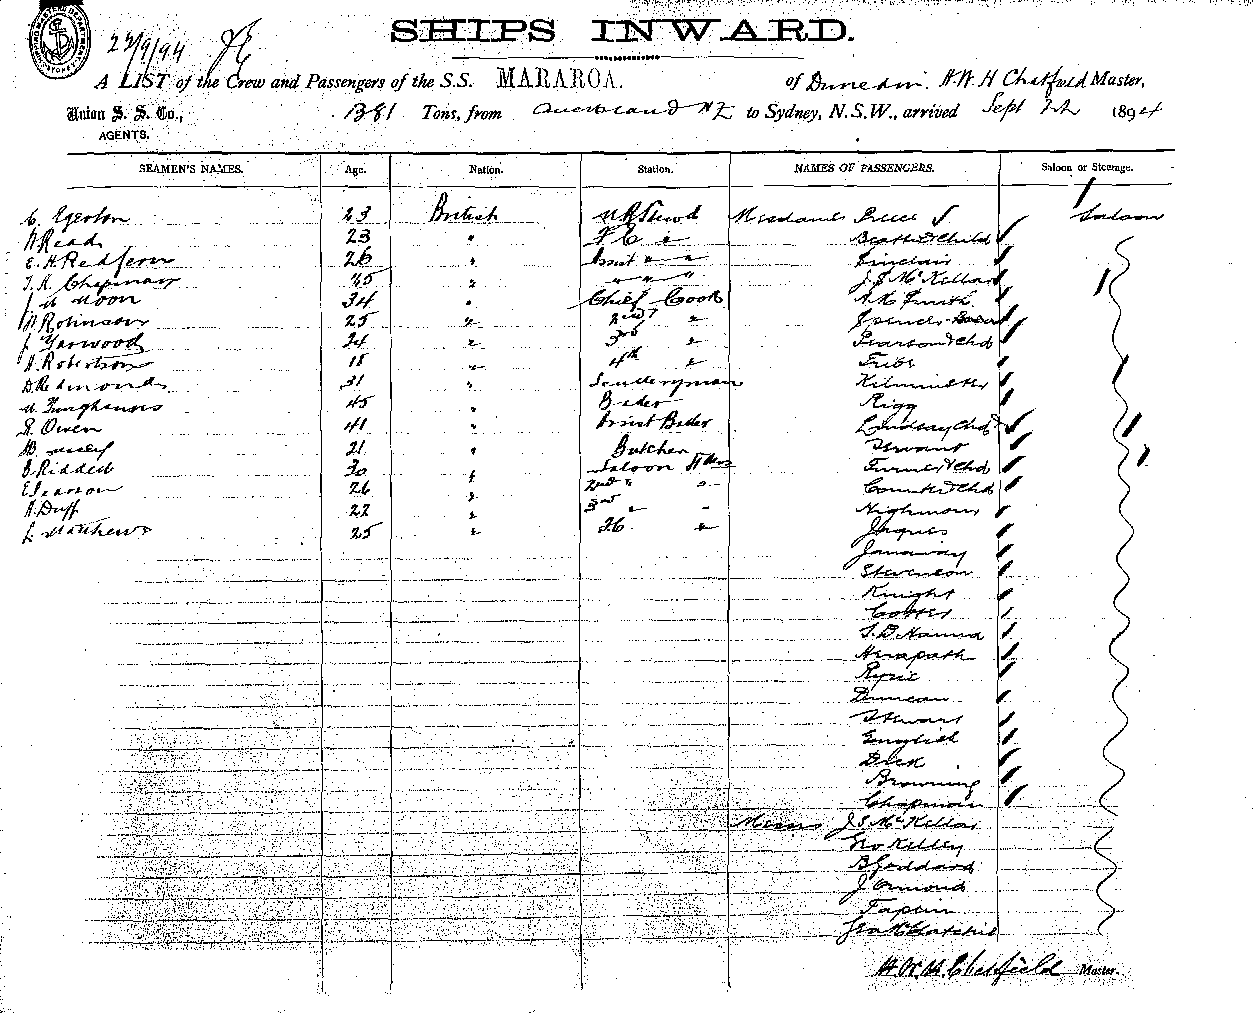 22/9/94
SHIPS INWARD.
A LIST of the Crew and Passengers of the S.S. MARAROA. of Dunedin. H.W.H Chatfield Master,
Union S. S. Co., 1381 Tons, from Auckland NZ to Sydney, N.S.W., arrived Sept 22 1894
AGENTS.
SEAMEN'S NAMES. Age. Nation. Station. NAMES OF PASSENGERS. Saloon or Steerage.
C. Egerton 23 British Stewd Mesdames Preece Saloon
H Read 23 " F C " & Child
E. H. Redfern 26 " Assist " " Sinclair
T. K. Chapman 35 " " " " J. S. McKellar
Moon 34 " Chief Cook A. K. Smith
H Robinson 25 " 2nd " Spencer
J Yarwood 24 " 3rd " Pearson & Chd
A. Robertson 18 " 4th "
D. Redmond 31 " Sculleryman Kilminster
45 " Baker Rigg
R. Owen 41 " Assist Baker Lindsay Chd &
21 " Butcher Servant
Riddell 30 " Saloon Turner & Chd
E Pearson 26 " 2nd " " & Chd
A. Duff 22 " 3rd " "
J. Matthews 25 " " Jaques
Janaway
Stevenson
Knight
Cotter
Herapath
Ryrie
Duncan
Stewart
English
Dick
Browning
Chapman
Messrs J S McKellar
Geo Kelley
B Goddard
J Ormond
H.W.H. Chatfield Master.